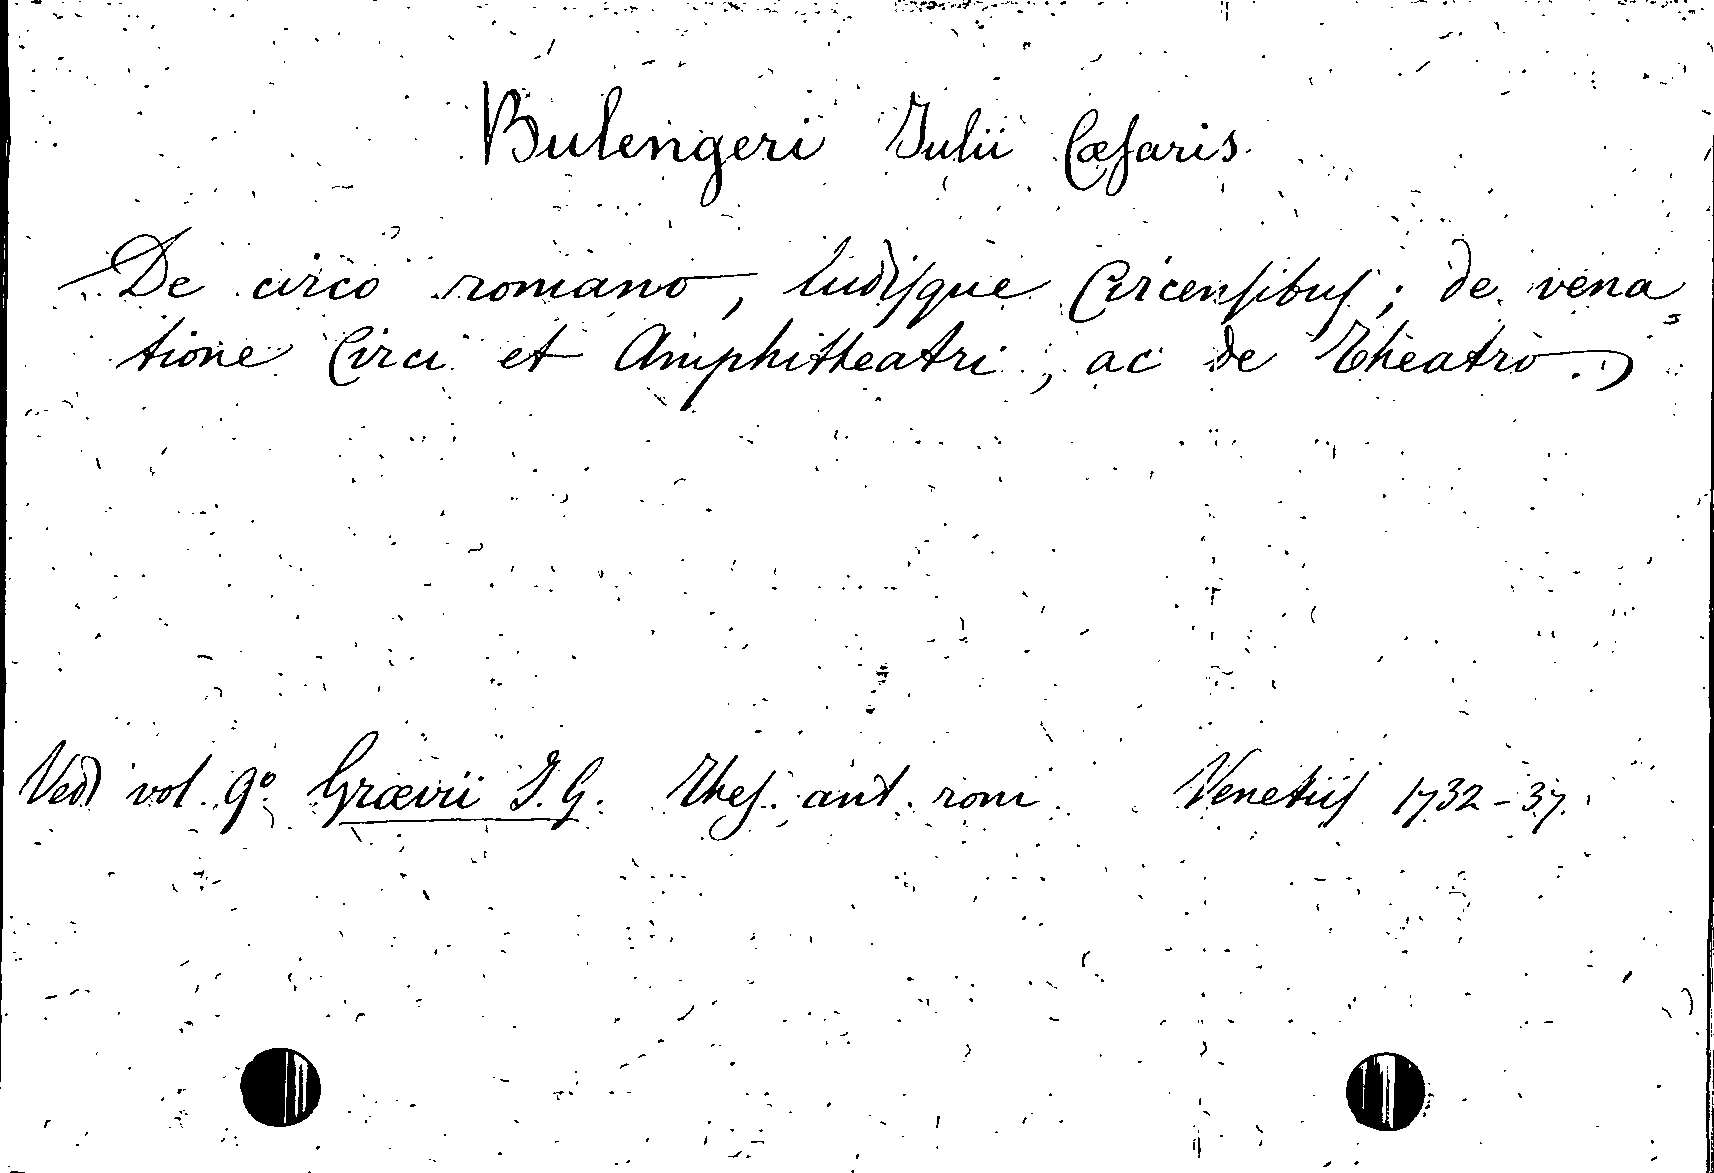 Bulengeri Julii Cæsaris
De circo romano, ludisque Circensibus; de vena
tione Circi et Amphitheatri, ac de Theatro.
Vedi vol. 9º Grævii J. G. Thes. ant. rom. Venetiis 1732-37.